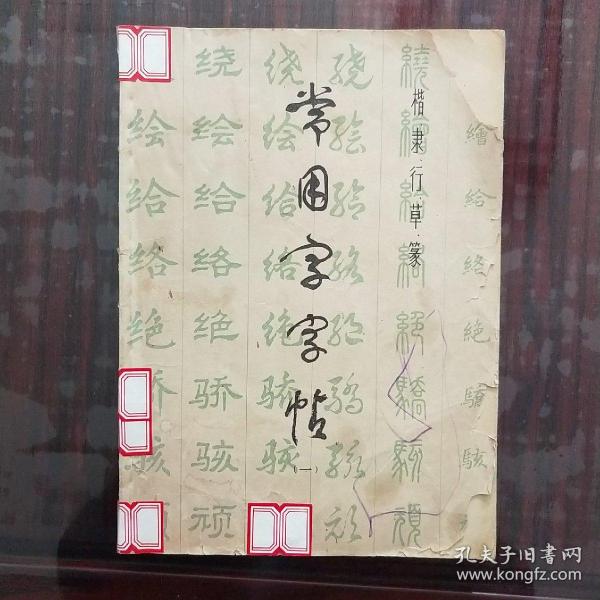 楷·隶·行·草·篆
常用字字帖
（一）
绘 给 络 绝 骄 骇
绕 绘 给 络 绝 骄 骇 顽
绕 绘 给 络 绝 骄 骇
绕 绘 给 络 绝 骄 骇 顽
繞 繪 給 絡 絕 驕 駭 頑
繪 給 絡 絕 驕 駭
孔夫子旧书网
www.kongfz.com